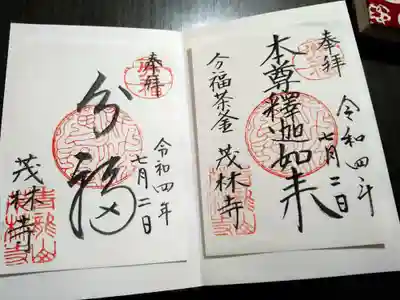 奉拝
令和四年
七月二日
本尊釋迦如来
分福茶釜 茂林寺
奉拝
令和四年
七月二日
分福
茂林寺